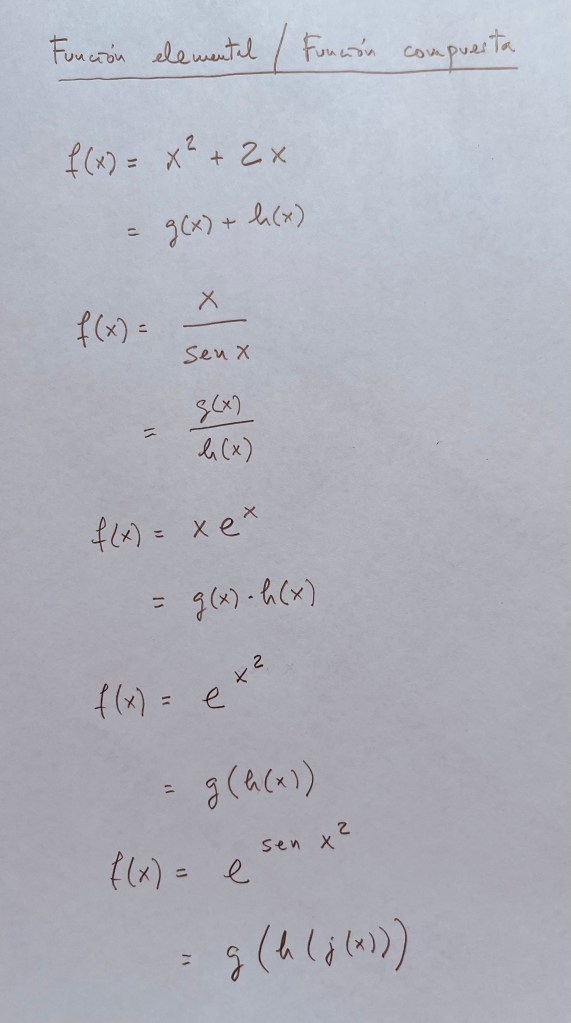 Función elemental / Función compuesta
f(x) = x² + 2x
= g(x) + h(x)
f(x) = x / sen x
= g(x) / h(x)
f(x) = x eˣ
= g(x) · h(x)
f(x) = e^x²
= g(h(x))
f(x) = e^sen x²
= g(h(j(x)))